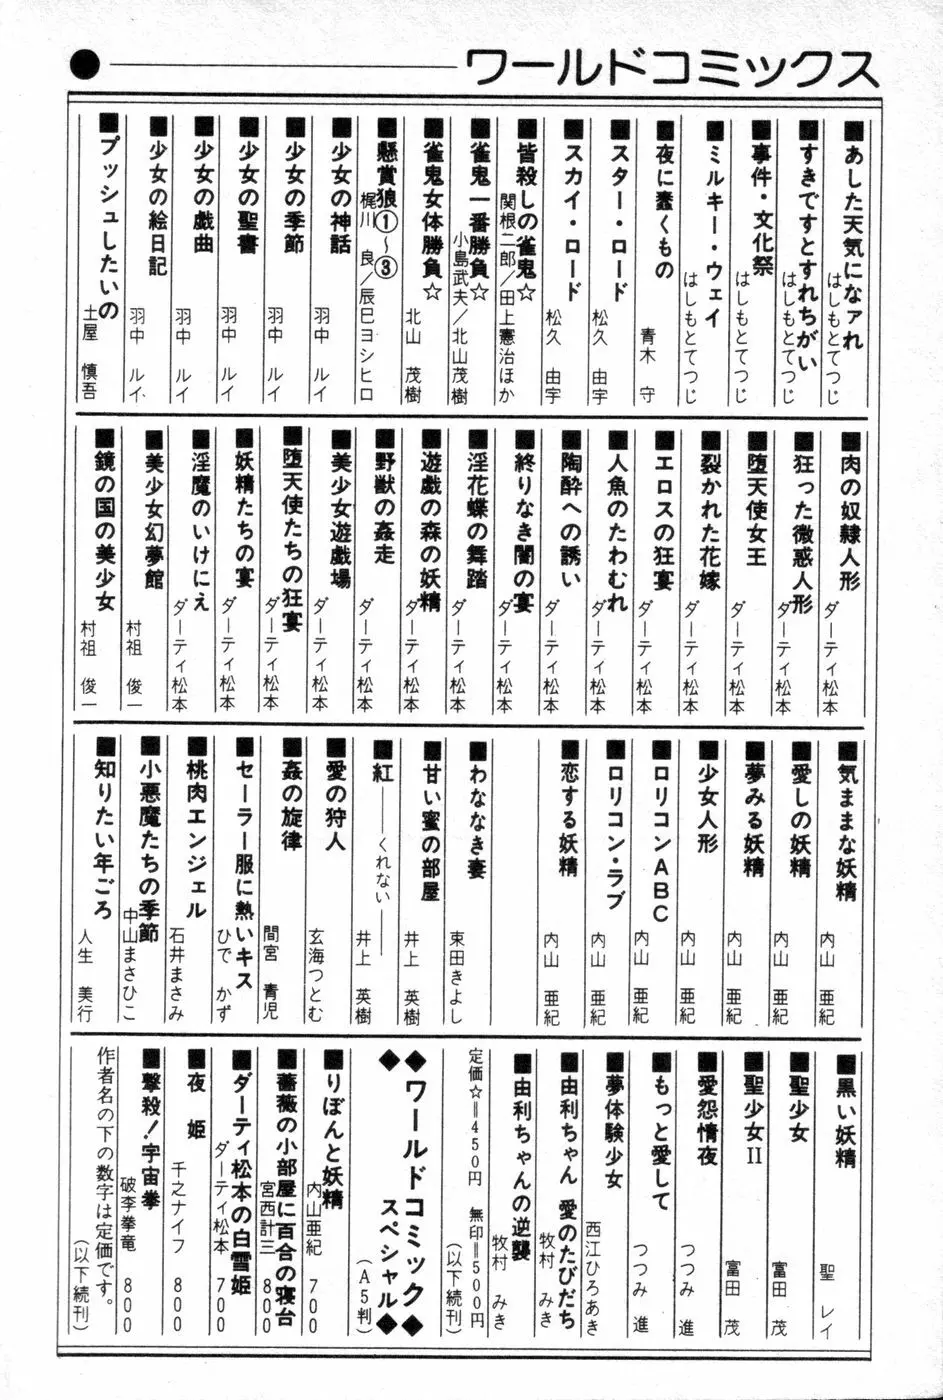 ワールドコミックス
■あした天気になァれ はしもとてつじ
■すきですとすれちがい はしもとてつじ
■事件・文化祭 はしもとてつじ
■ミルキー・ウェイ はしもとてつじ
■夜に蠢くもの 青木 守
■スター・ロード 松久 由宇
■スカイ・ロード 松久 由宇
■皆殺しの雀鬼☆ 関根二郎／田上憲治ほか
■雀鬼一番勝負☆ 小島武夫／北山茂樹
■雀鬼女体勝負☆ 北山 茂樹
■懸賞狼①～③ 梶川 良／辰巳ヨシヒロ
■少女の神話 羽中 ルイ
■少女の季節 羽中 ルイ
■少女の聖書 羽中 ルイ
■少女の戯曲 羽中 ルイ
■少女の絵日記 羽中 ルイ
■プッシュしたいの 土屋 慎吾
■肉の奴隷人形 ダーティ松本
■狂った微惑人形 ダーティ松本
■堕天使女王 ダーティ松本
■裂かれた花嫁 ダーティ松本
■エロスの狂宴 ダーティ松本
■人魚のたわむれ ダーティ松本
■陶酔への誘い ダーティ松本
■終りなき闇の宴 ダーティ松本
■淫花蝶の舞踏 ダーティ松本
■遊戯の森の妖精 ダーティ松本
■野獣の姦走 ダーティ松本
■美少女遊戯場 ダーティ松本
■堕天使たちの狂宴 ダーティ松本
■妖精たちの宴 ダーティ松本
■淫魔のいけにえ ダーティ松本
■美少女幻夢館 村祖 俊一
■鏡の国の美少女 村祖 俊一
■気ままな妖精 内山 亜紀
■愛しの妖精 内山 亜紀
■夢みる妖精 内山 亜紀
■少女人形 内山 亜紀
■ロリコンABC 内山 亜紀
■ロリコン・ラブ 内山 亜紀
■恋する妖精 内山 亜紀
■わななき妻 東田きよし
■甘い蜜の部屋 井上 英樹
■紅――くれない―― 井上 英樹
■愛の狩人 玄海つとむ
■姦の旋律 間宮 青児
■セーラー服に熱いキス ひで かず
■桃肉エンジェル 石井まさみ
■小悪魔たちの季節 中山まさひこ
■知りたい年ごろ 人生 美行
■黒い妖精 聖 レイ
■聖少女 富田 茂
■聖少女II 富田 茂
■愛怨情夜 つつみ 進
■もっと愛して つつみ 進
■夢体験少女 西江ひろあき
■由利ちゃん 愛のたびだち 牧村 みき
■由利ちゃんの逆襲 牧村 みき
定価☆＝450円 無印＝500円
（以下続刊）
◆ワールドコミック◆
◆スペシャル◆
（A5判）
■りぼんと妖精 内山亜紀 700
■薔薇の小部屋に百合の寝台 宮西計三 800
■ダーティ松本の白雪姫 ダーティ松本 700
■夜 姫 千之ナイフ 800
■撃殺！宇宙拳 破李拳竜 800
作者名の下の数字は定価です。
（以下続刊）